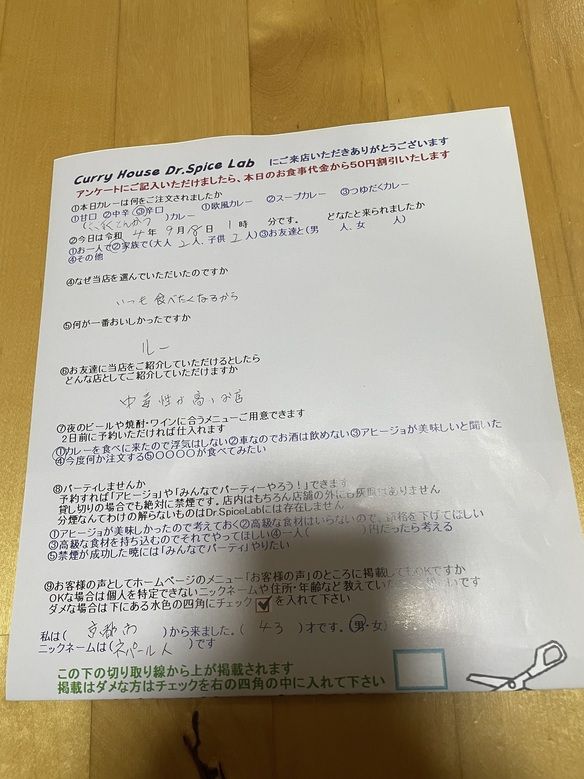 Curry House Dr.Spice Lab にご来店いただきありがとうございます
アンケートにご記入いただけましたら、本日のお食事代金から50円割引いたします
①本日カレーは何をご注文されましたか
①甘口 ②中辛 ③辛口 ①欧風カレー ②スープカレー ③つゆだくカレー
( とんかつ )カレー
②今日は令和 4 年 9 月 18 日 1 時 分です。 どなたと来られましたか
①お一人で②家族で(大人 2 人、子供 2 人)③お友達と(男 人、女 人)
④その他
④なぜ当店を選んでいただいたのですか
いつも食べたくなるから
⑤何が一番おいしかったですか
ルー
⑥お友達に当店をご紹介していただけるとしたら
どんな店としてご紹介していただけますか
中毒性が高いお店
⑦夜のビールや焼酎・ワインに合うメニューご用意できます
2日前に予約いただければ仕入れます
①カレーを食べに来たので浮気はしない②車なのでお酒は飲めない③アヒージョが美味しいと聞いた
④今度何か注文する⑤〇〇〇〇が食べてみたい
⑧パーティしませんか
予約すれば「アヒージョ」や「みんなでパーティーやろう!」できます
貸し切りの場合でも絶対に禁煙です。店内はもちろん店舗の外にも灰皿はありません
分煙なんてわけの解らないものはDr.SpiceLabには存在しません
①アヒージョが美味しかったので考えておく②高級な食材はいらないので、価格を下げてほしい
③高級な食材を持ち込むのでそれでやってほしい④一人( )円だったら考える
⑤禁煙が成功した暁には「みんなでパーティ」やりたい
⑨お客様の声としてホームページのメニュー「お客様の声」のところに掲載してもOKですか
OKな場合は個人を特定できないニックネームや住所・年齢など教えていただければ嬉しいです
ダメな場合は下にある水色の四角にチェック を入れて下さい
私は( 京都市 )から来ました。( 43 )才です。(男・女)
ニックネームは( ネパール人 )です
この下の切り取り線から上が掲載されます
掲載はダメな方はチェックを右の四角の中に入れて下さい